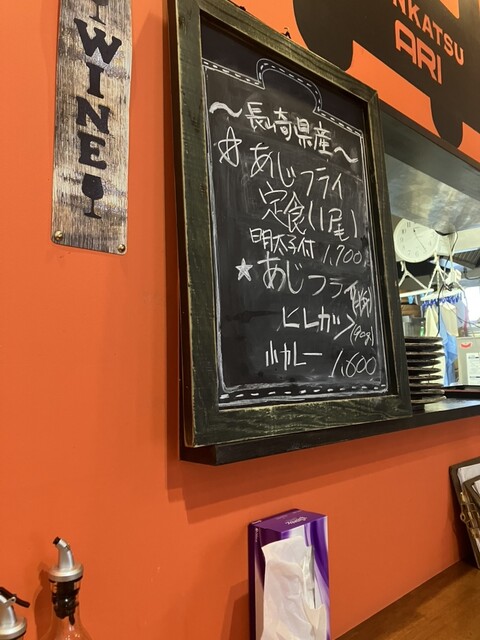 WINE
NKATSU
ARI
〜長崎県産〜
☆あじフライ
定食(1尾)
明太子付 1,700
★あじフライ
ヒレカツ(90g)
小カレー 1,600